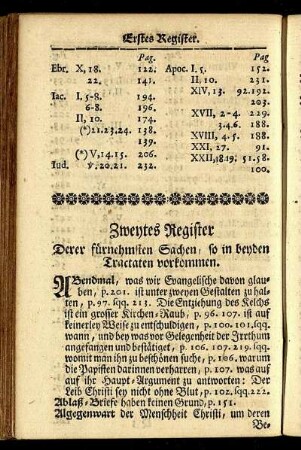 Erstes Register.
Pag. Pag
Ebr. X, 18. 122. Apoc. I, 5. 152.
22. 141. II, 10. 231.
Iac. I, 5-8. 194. XIV, 13. 92.192.
6-8. 196. 203.
II, 10. 174. XVII, 2-4. 229.
(*) 21.23.24. 138. 3.4.6. 188.
139. XVIII, 4.5. 188.
(*) V, 14.15. 206. XXI, 27. 91.
Iud. v. 20.21. 232. XXII, 18.19. 51.58.
100.
Zweytes Register
Derer fürnehmsten Sachen, so in beyden
Tractaten vorkommen.
ABendmal, was wir Evangelische davon glau-
ben, p. 201. ist unter zweyen Gestalten zu hal-
ten, p. 97. sqq. 213. Die Entziehung des Kelchs
ist ein grosser Kirchen-Raub, p. 96. 107. ist auf
keinerley Weise zu entschuldigen, p. 100. 101. sqq.
wann, und bey was vor Gelegenheit der Irrthum
angefangen und bestätiget, p. 106. 107. 219. sqq.
womit man ihn zu beschönen suche, p. 106. warum
die Papisten darinnen verharren, p. 107. was auf
auf ihr Haupt-Argument zu antworten: Der
Leib Christi sey nicht ohne Blut, p. 102. sqq. 222.
Ablaß-Briefe haben keinen Grund, p. 151.
Algegenwart der Menschheit Christi, um deren
Be-